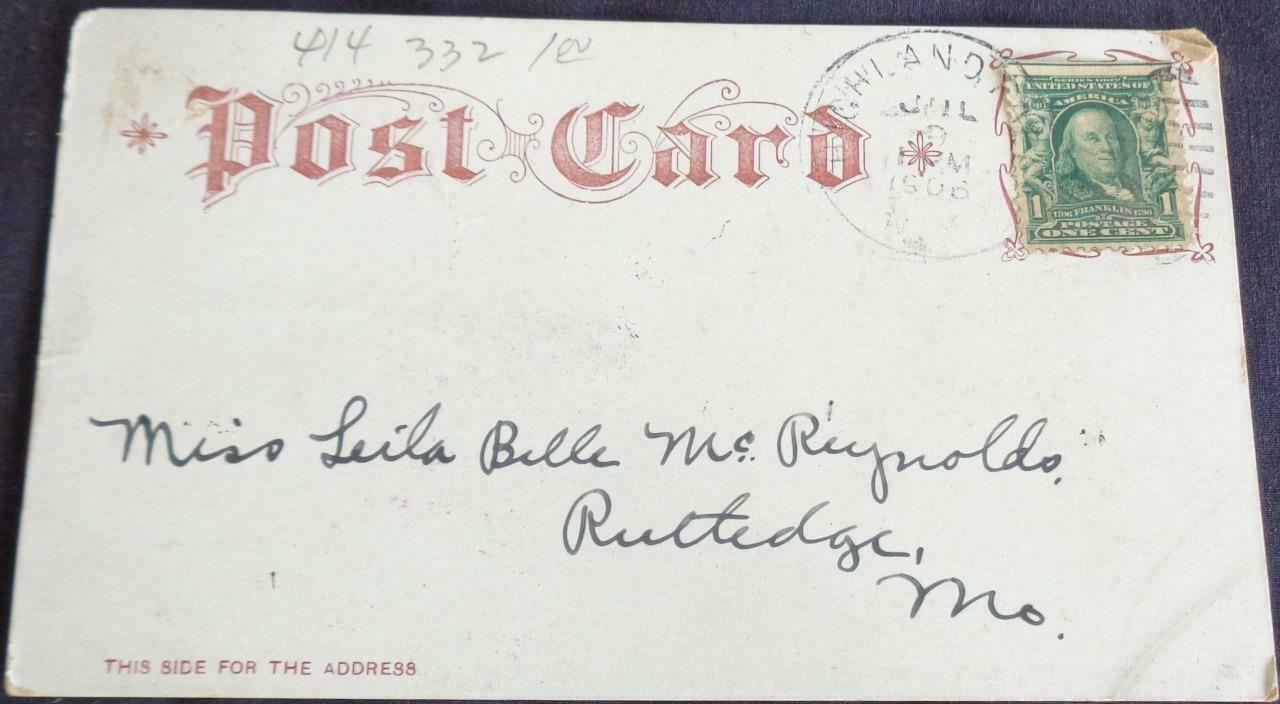 414 332 100
Post Card
HIGHLAND
JUL
9
PM
1906
N.Y.
SERIES 1902
UNITED STATES OF
AMERICA
1 1
1706 FRANKLIN 1790
POSTAGE
ONE CENT
Miss Leila Belle Mc. Reynolds,
Ruttedge,
Mo.
THIS SIDE FOR THE ADDRESS.